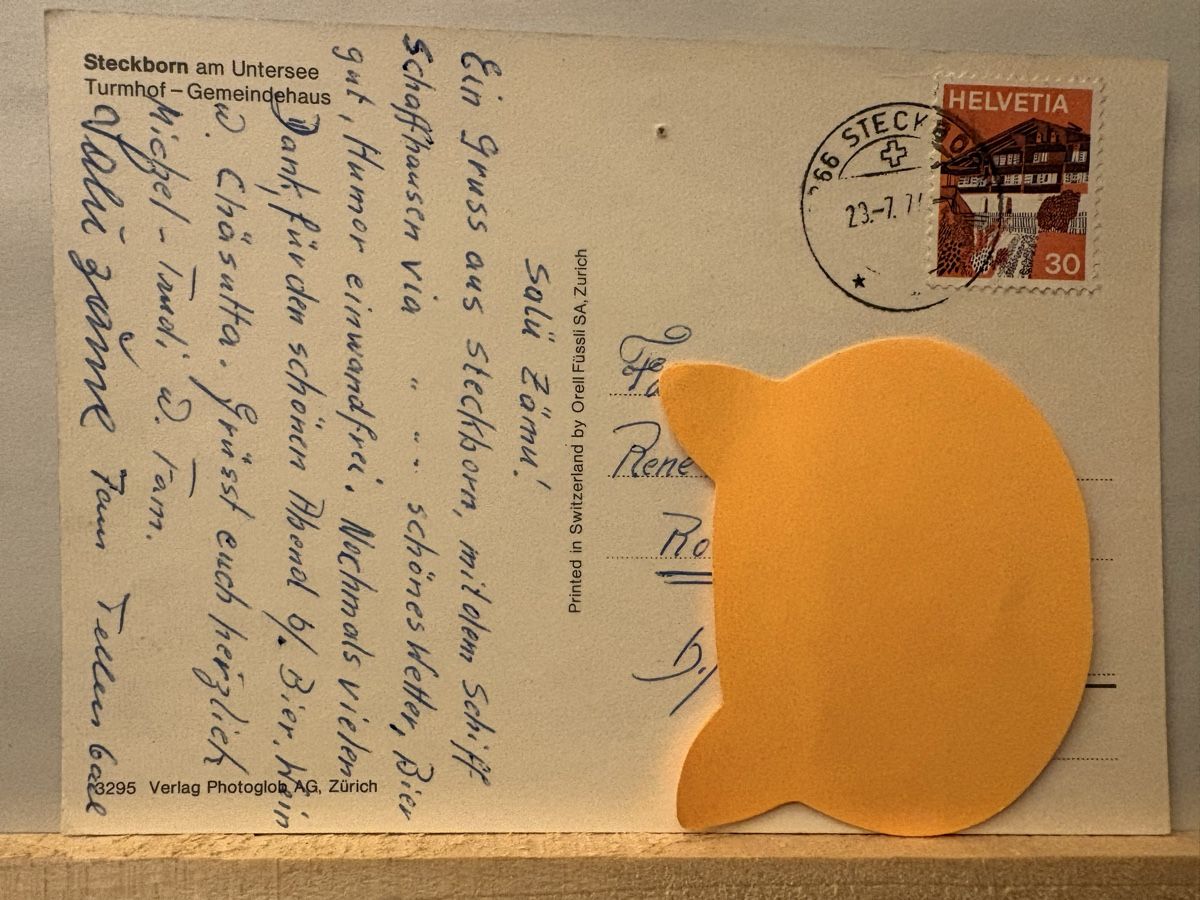 Steckborn am Untersee
Turmhof – Gemeindehaus
Salü Zämu!
Ein Gruss aus Steckborn, mit dem Schiff
Schaffhausen via " " schönes Wetter, Bier
gut, Humor einwandfrei. Nochmals vielen
Dank, für den schönen Abend b/. Bier, Wein
u. Chäsutta. Grüsst euch herzlich
Michel - Trudi u. Fam.
Salü zäme Fam
3295 Verlag Photoglob AG, Zürich
Printed in Switzerland by Orell Füssli SA, Zurich
STECKBO
23.-7.7
HELVETIA
30
René
Ro
b/